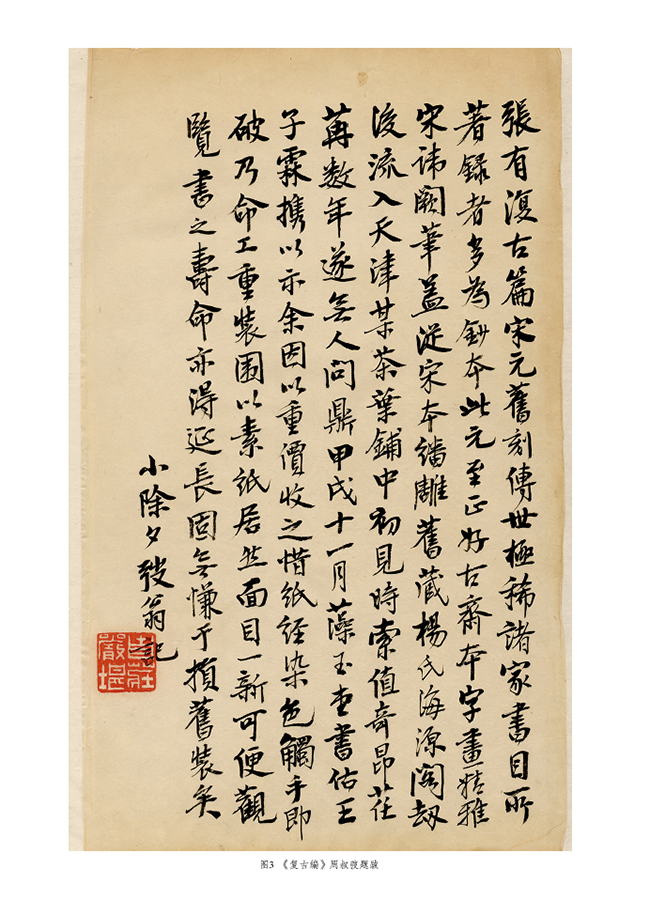 張有復古篇宋元舊刻傳世極稀諸家書目所
著錄者多為鈔本此元至正好古齋本字畫精雅
宋諱闕筆蓋從宋本繙雕舊藏楊氏海源閣劫
後流入天津某茶葉鋪中初見時索值奇昂荏
苒数年遂無人問鼎甲戌十一月藻玉堂書估王
子霖攜以示余因以重價收之惜紙經染色觸手即
破乃命工重裝圍以素紙居然面目一新可便觀
覽書之壽命亦得延長固無慊于損舊裝矣
小除夕弢翁記
圖3 《复古编》周叔弢题跋